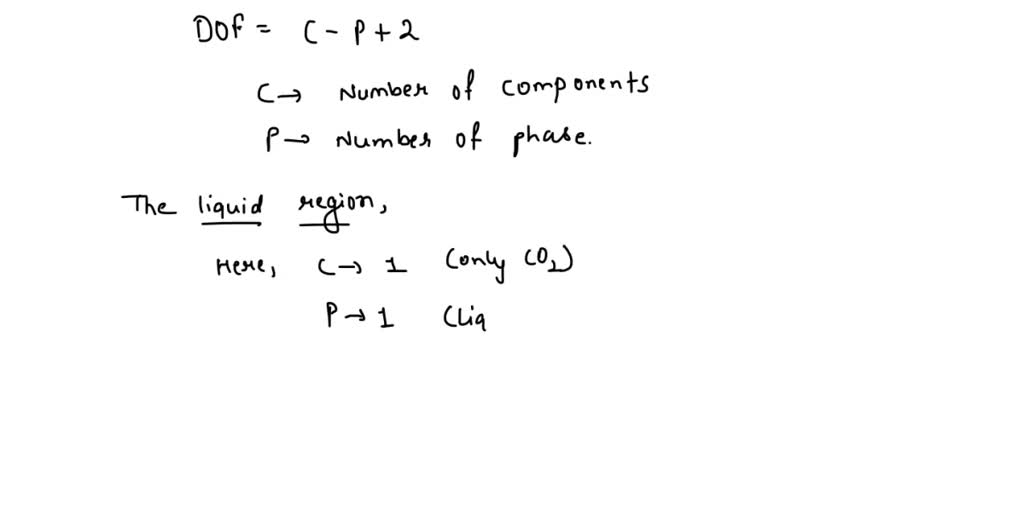 DOF = C - P + 2
C → Number of components
P → Number of phase.
The liquid region,
Here, C → 1 (only CO₂)
P → 1 (Liq